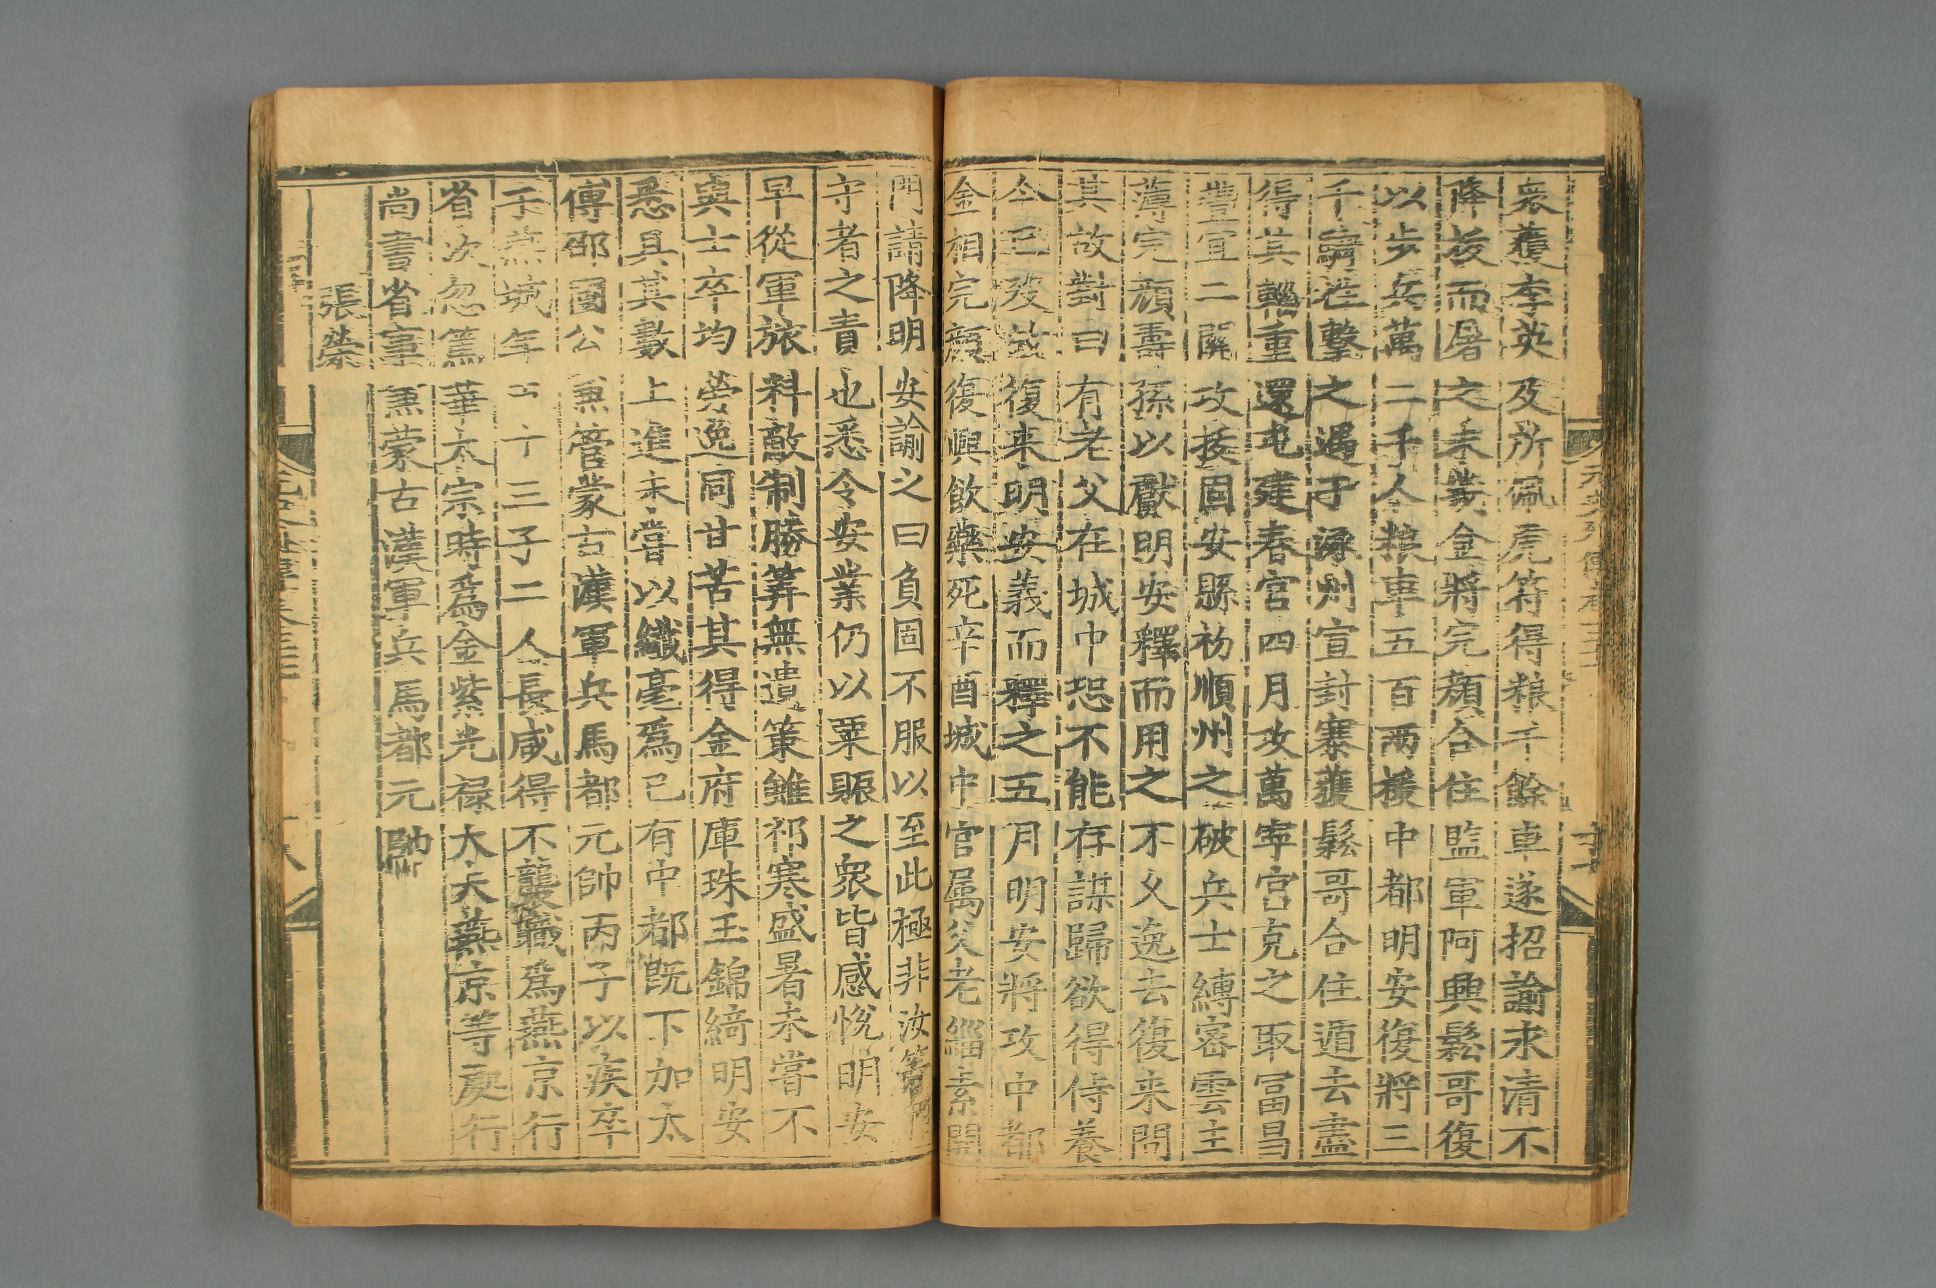 衆獲李英及所佩虎符得粮千餘車遂招諭永清不
降拔而屠之未幾金將完顔合住監軍阿興鬆哥復
以步兵萬二千人粮車五百两援中都明安復將三
千騎往擊之遇于涿州宣封寨獲鬆哥合住遁去盡
得其輜重還屯建春宮四月攻萬寧宮克之取富昌
豐宜二關攻拔固安縣初順州之破兵士縛密雲主
薄完顔壽孫以獻明安釋而用之不久逸去復来問
其故對曰有老父在城中恐不能存謀歸欲得侍養
今已殁故復来明安義而釋之五月明安將攻中都
金相完顔復興飲藥死辛酉城中官属父老緇素開
門請降明安諭之曰負固不服以至此極非汝等罪
守者之責也悉令安業仍以粟賑之衆皆感悅明安
早從軍旅料敵制勝筭無遺策雖祁寒盛暑未嘗不
與士卒均勞逸同甘苦其得金府庫珠玉錦綺明安
悉具其數上進未嘗以纖毫爲己有中都既下加太
傅邵國公兼管蒙古漢軍兵馬都元帥丙子以疾卒
于燕城年三子二人長咸得不襲職爲燕京行
省次忽篤華太宗時爲金紫光禄大夫燕京等處行
尚書省事兼蒙古漢軍兵馬都元帥
張榮